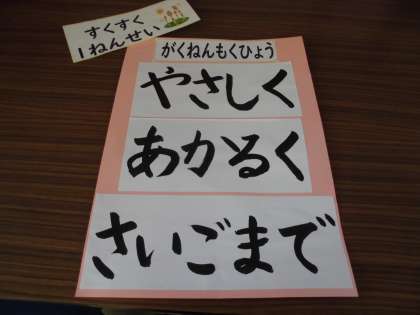 すくすく
1ねんせい
がくねんもくひょう
やさしく
あかるく
さいごまで